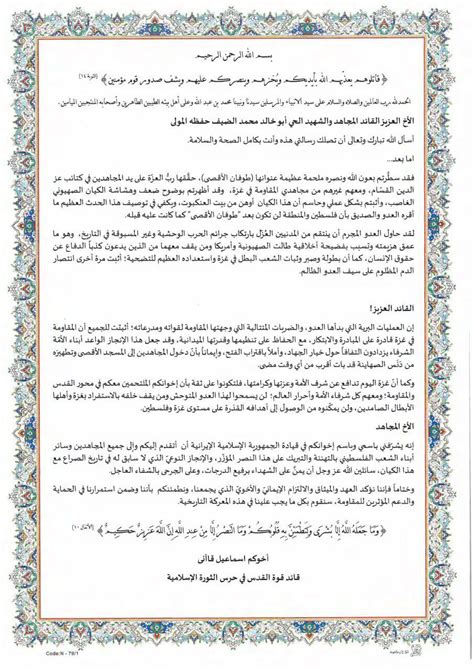 بسم الله الرحمن الرحيم
﴿ قَاتِلُوهُمْ يُعَذِّبْهُمُ اللَّهُ بِأَيْدِيكُمْ وَيُخْزِهِمْ وَيَنصُرْكُمْ عَلَيْهِمْ وَيَشْفِ صُدُورَ قَوْمٍ مُؤْمِنِينَ ﴾ (التوبة ١٤)
الحمد لله رب العالمين والصلاة والسلام على سيد الأنبياء والمرسلين سيدنا ونبينا محمد بن عبد الله وعلى أهل بيته الطيبين الطاهرين وأصحابه المنتجبين الميامين.
الأخ العزيز القائد المجاهد والشهيد الحي أبو خالد محمد الضيف حفظه المولى
أسأل الله تبارك وتعالى أن تصلك رسالتي هذه وأنت بكامل الصحة والسلامة.
اما بعد...
فقد سطّرتم بعون الله ونصره ملحمة عظيمة عنوانها (طوفان الأقصى)، حقّقها ربُّ العزّة على يد المجاهدين في كتائب عز
الدين القسّام، ومعهم غيرهم من مجاهدي المقاومة في غزة، وقد أظهرتم بوضوح ضعف وهشاشة الكيان الصهيوني
الغاصب، وأثبتم بشكل عملي وحاسم أن هذا الكيان أوهن من بيت العنكبوت، ويكفي في توصيف هذا الحدث العظيم ما
أقره العدو والصديق بأن فلسطين والمنطقة لن تكون بعد "طوفان الأقصى" كما كانت عليه قبله.
لقد حاول العدو المجرم أن ينتقم من المدنيين العُزّل بارتكاب جرائم الحرب الوحشية وغير المسبوقة في التاريخ، وهو ما
عمق هزيمته وتسبب بفضيحة أخلاقية طالت الصهيونية وأمريكا ومن يقف معهما من الذين يدعون كذباً الدفاع عن
حقوق الإنسان، كما أن بطولة وصبر وثبات الشعب البطل في غزة واستعداده العظيم للتضحية؛ أثبت مرة أخرى انتصار
الدم المظلوم على سيف العدو الظالم.
القائد العزيز!
إن العمليات البرية التي بدأها العدو، والضربات المتتالية التي وجهتها المقاومة لقواته ومدرعاته؛ أثبتت للجميع أن المقاومة
في غزة قادرة على المبادرة والابتكار، مع الحفاظ على تنظيمها وقدرتها الميدانية، وقد جعل هذا الإنجاز الواعد أبناءَ الأمة
الشرفاء يزدادون التفافاً حول خيار الجهاد، وأملاً باقتراب الفتح، وإيماناً بأنّ دخول المجاهدين إلى المسجد الأقصى وتطهيره
من دَنَس الصهاينة قد بات أقرب من أي وقت مضى.
وكما أنّ غزة اليوم تدافع عن شرف الأمة وعزتها وكرامتها، فلتكونوا على ثقة بأن إخوانكم الملتحمين معكم في محور القدس
والمقاومة؛ ومعهم كل شرفاء الأمة وأحرار العالم؛ لن يسمحوا لهذا العدو المتوحش ومن يقف خلفه الاستفراد بغزة وأهلها
الأبطال الصامدين، ولن يمكّنوه من الوصول إلى أهدافه القذرة على مستوى غزة وفلسطين.
الأخ المجاهد
إنه يشرّفني باسمي وباسم إخوانكم في قيادة الجمهورية الإسلامية الإيرانية أن أتقدم إليكم وإلى جميع المجاهدين وسائر
أبناء الشعب الفلسطيني بالتهنئة والتبريك على هذا النصر المؤزّر، والإنجاز النوعيّ الذي لا سابق له في تاريخ الصراع مع
هذا الكيان، سائلين الله عز وجل أن يمنّ على الشهداء برفيع الدرجات، وعلى الجرحى بالشفاء العاجل.
وختاماً فإننا نؤكد العهد والميثاق والالتزام الإيمانيّ والأخويّ الذي يجمعنا، ونطمئنكم بأننا وضمن استمرارنا في الحماية
والدعم المؤثرين للمقاومة، سنقوم بكل ما يجب علينا في هذه المعركة التاريخية.
﴿ وَمَا جَعَلَهُ اللَّهُ إِلَّا بُشْرَى وَلِتَطْمَئِنَّ بِهِ قُلُوبُكُمْ وَمَا النَّصْرُ إِلَّا مِنْ عِندِ اللَّهِ إِنَّ اللَّهَ عَزِيزٌ حَكِيمٌ ﴾ (الأنفال ١٠)
أخوكم اسماعيل قاآني
قائد قوة القدس في حرس الثورة الإسلامية
Code:N - 79/1